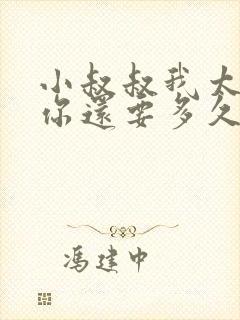 小叔叔我大
你還要多久
馮建中